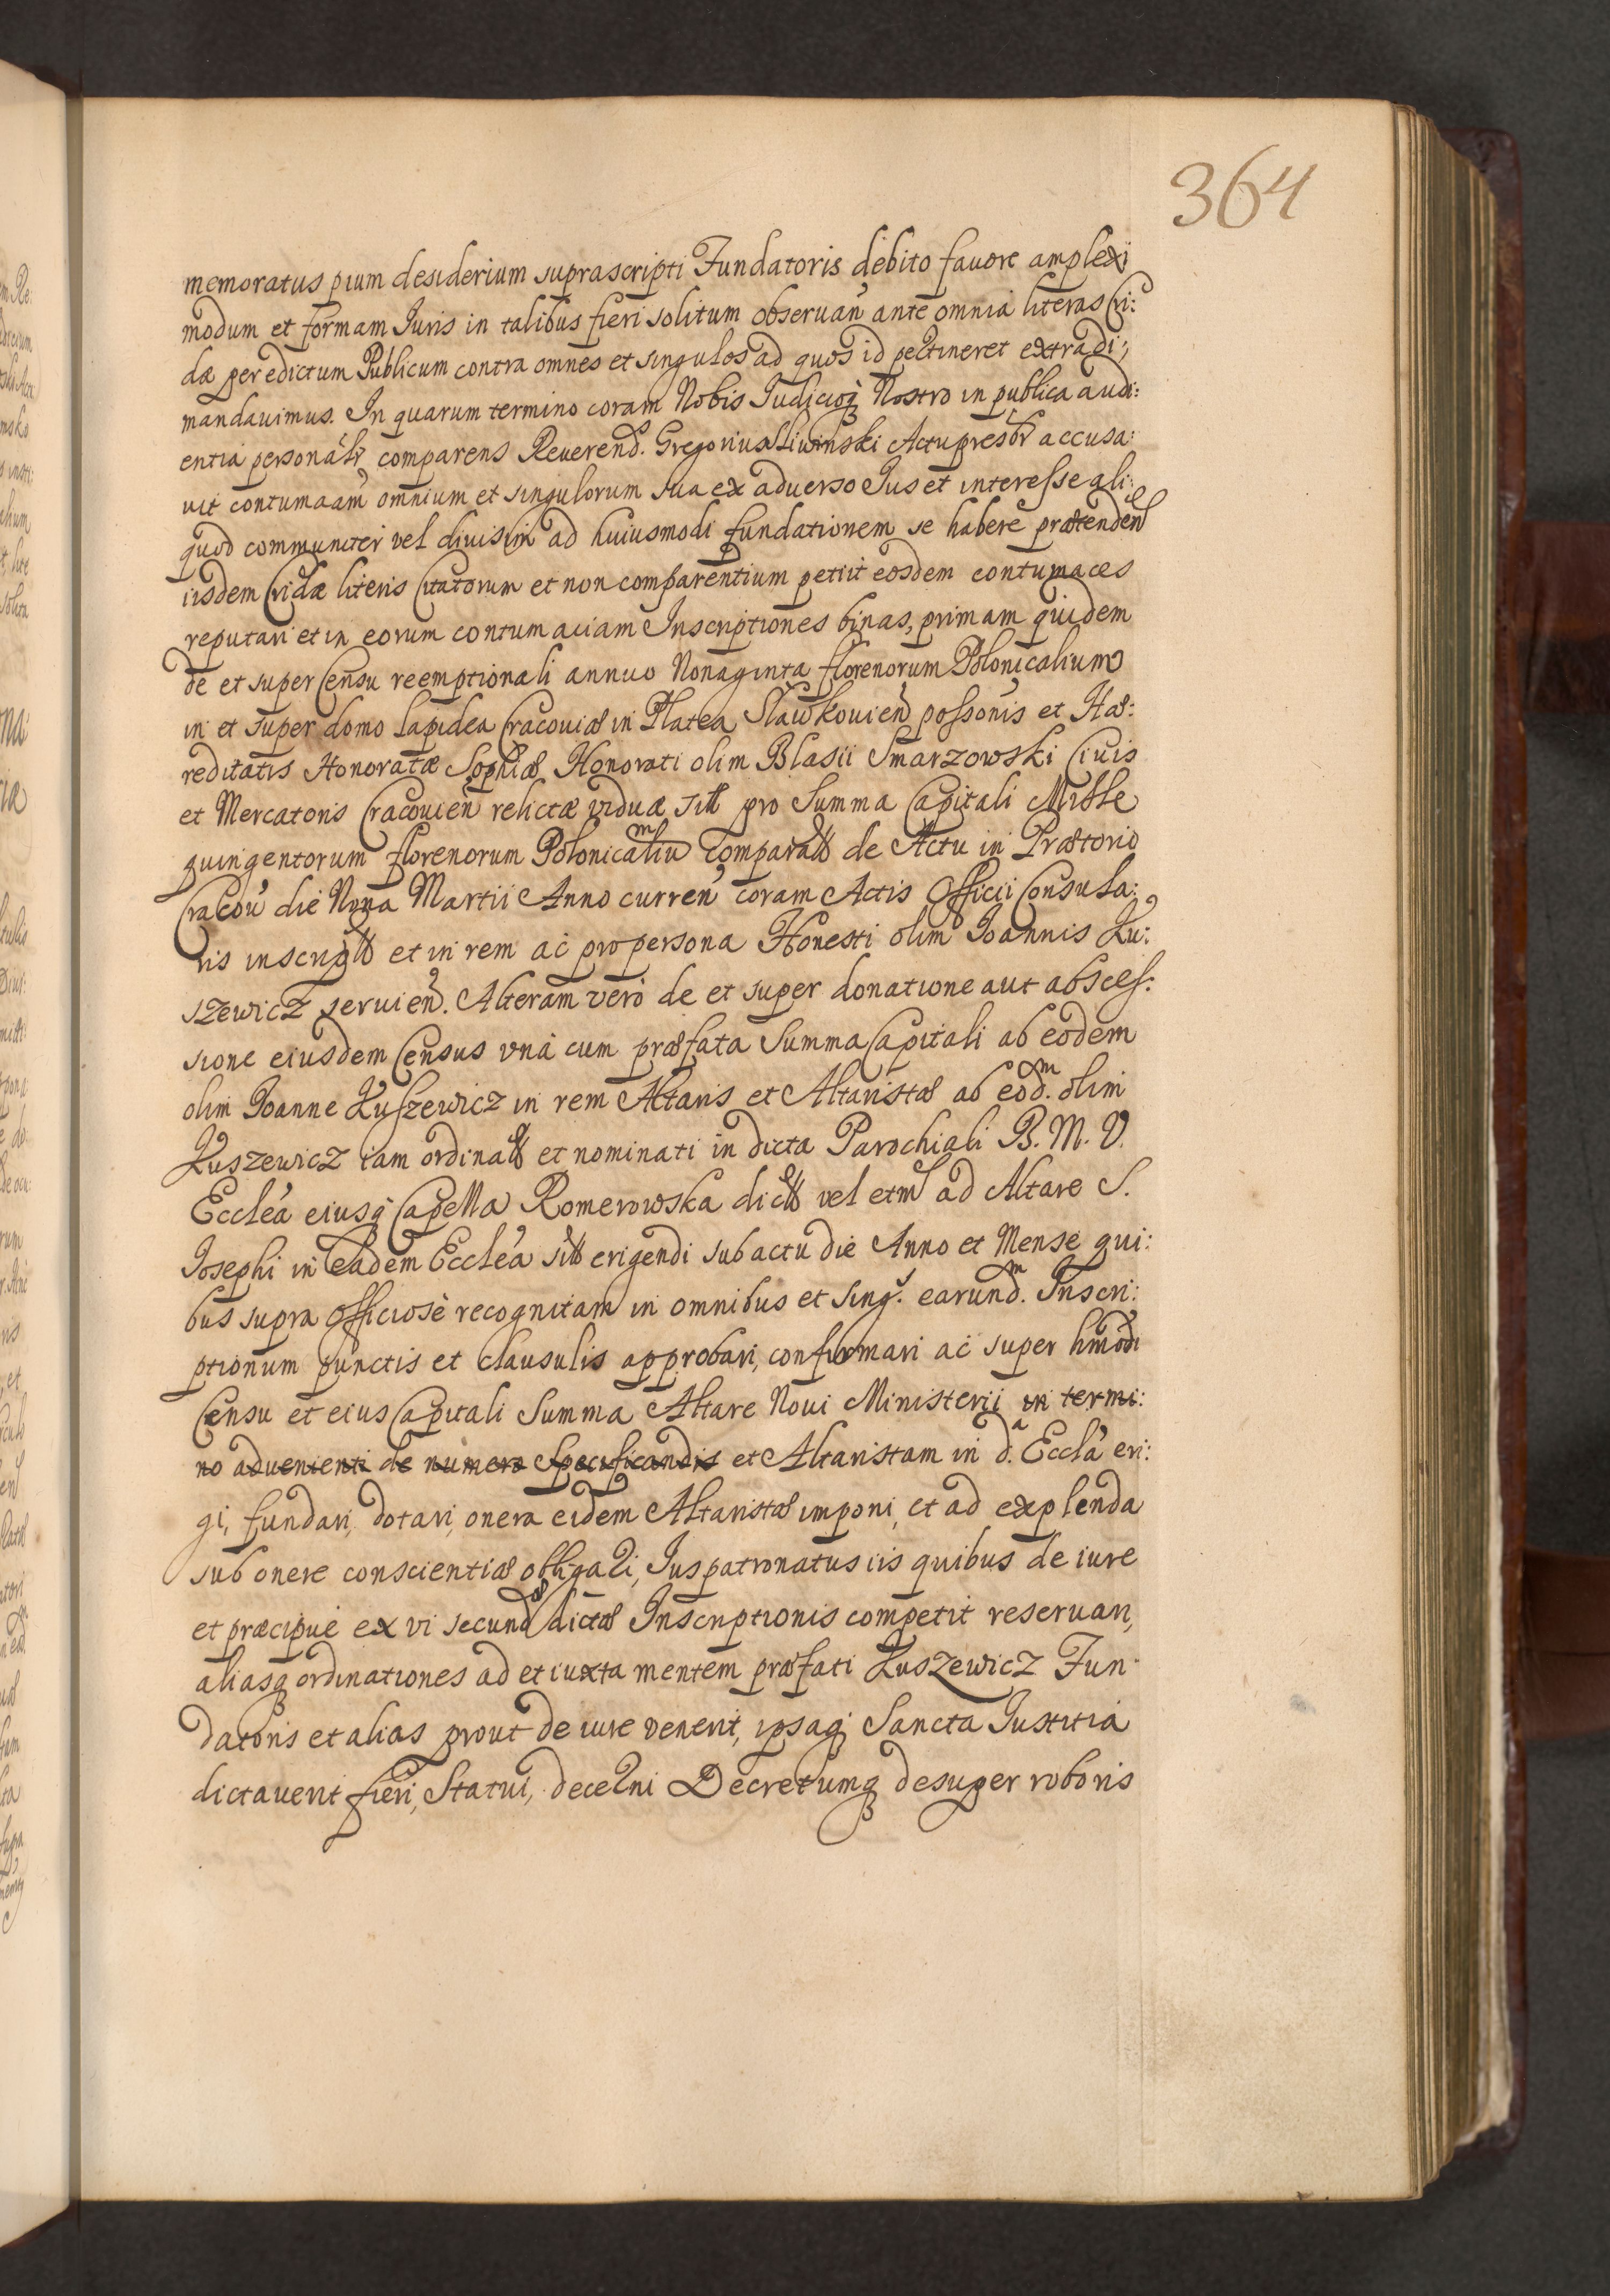 364
memoratus pium desiderium suprascripti Fundatoris debito fauore amplexi
modum et formam Iuris in talibus fieri solitum obseruañ ante omnia literas Cri:
dæ per edictum Publicum contra omnes et singulos ad quos id pertineret extradi;
mandauimus. In quarum termino coram Nobis Iudicioq́ Nostro in publica audi:
entia personalr comparens Reuerend.s Gregorius Sliwinski Actupresbr accusa:
uit contumaam omnium et singulorum sua ex aduerso Ius et interesse ali:
quod communiter vel diuisim ad huiusmodi fundationem se habere prætenden
iisdem Cridæ literis Citatorum et non comparentium petiit eosdem contumaces
reputari et in eorum contumaciam Inscriptiones binas, primam quidem
de et super Censu reemptionali annuo Nonaginta florenorum Polonicalium
in et super domo lapidea Cracouiæ in Platea Slawkouień possonis et Hæ:
reditatis Honoratæ Sophiæ Honorati olim Blasii Smarzowski Ciuis
et Mercatoris Cracouień relictæ viduæ sitt pro Summa Capitali Mille
quingentorum florenorum Polonicaliu m comparatt de Actu in Prætorio
Cracou die Nona Martii Anno curreń coram Actis Officii Consula:
ris inscriptt et in rem ac pro persona Honesti olim Ioannis Łu:
szewicz seruień. Alteram vero de et super donatione aut absces:
sione eiusdem Census vná cum præfata Summa Capitali ab eodem
olim Ioanne Łuszewicz in rem Altaris et Altaristæ ab eod.m olim
Łuszewicz iam ordinatt et nominati in dicta Parochiali B. M. V.
Eccleá eiusq́ Capella Romerowska dictt vel etm ad Altare S.
Iosephi in Eadem Eccleá sitt erigendi sub actu die Anno et Mense qui:
bus supra officiosè recognitam in omnibus et sing.s earund.m Inscri:
ptionum punctis et clausulis approbari, confirmari ac super hmodi
Censu et eius Capitali Summa Altare Noui Ministerii in termi:
no aduenienti de numero Specificandis et Altaristam in d.a Ecclá eri:
gi, fundari, dotari, onera eidem Altaristæ imponi, et ad explenda
sub onere conscientiæ obligari, Ius patronatus iis quibus de iure
et præcipuè ex vi secundæ dictæ Inscriptionis competit reseruari,
aliasq ordinationes ad et iuxta mentem præfati Łuszewicz Fun
datoris et alias prout de iure venerit, ipsaq Sancta Iustitia
dictauerit fieri, Statui, decerni Decretumq desuper roboris